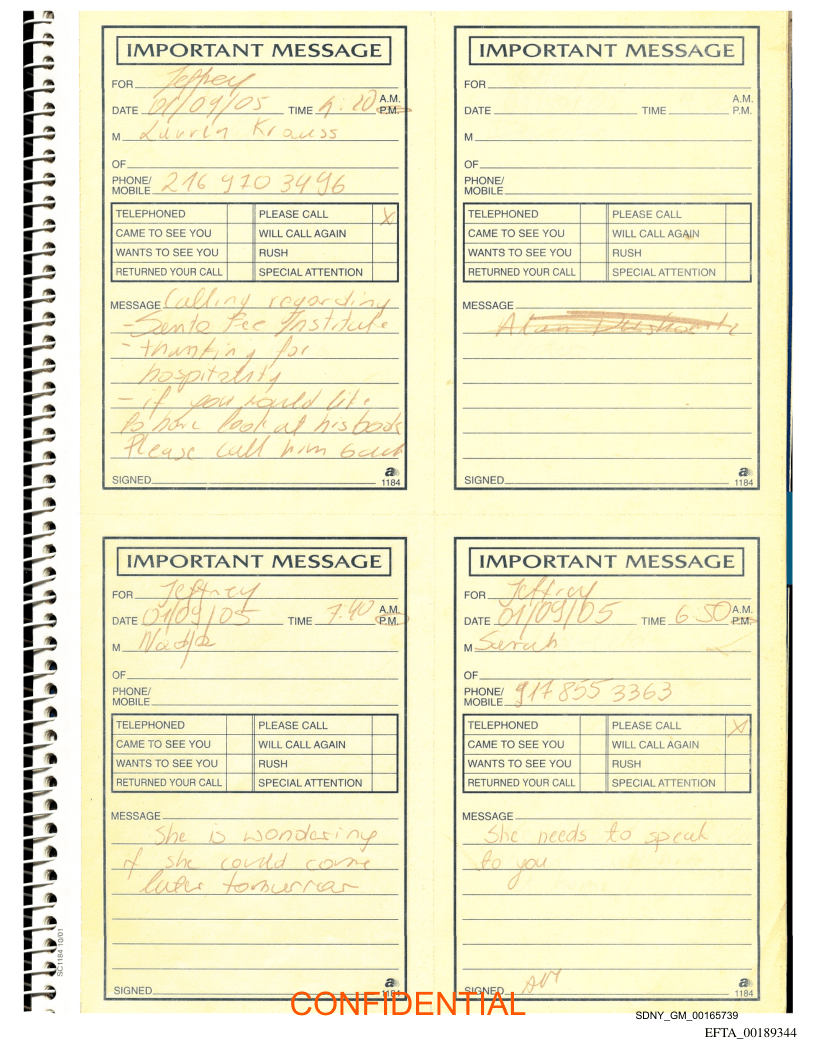 IMPORTANT MESSAGE
FOR Jeffrey
DATE 01/09/05 TIME 4:20 A.M.
P.M.
M Lawrence Krauss
OF
PHONE/
MOBILE 216 970 3496
TELEPHONED PLEASE CALL X
CAME TO SEE YOU WILL CALL AGAIN
WANTS TO SEE YOU RUSH
RETURNED YOUR CALL SPECIAL ATTENTION
MESSAGE Calling regarding
- Santo Fee Institute
- thanking for
hospitality
- if you would like
to have look at his book
Please call him back
SIGNED
a
1184
IMPORTANT MESSAGE
FOR
DATE TIME A.M.
P.M.
M
OF
PHONE/
MOBILE
TELEPHONED PLEASE CALL
CAME TO SEE YOU WILL CALL AGAIN
WANTS TO SEE YOU RUSH
RETURNED YOUR CALL SPECIAL ATTENTION
MESSAGE
Alan
SIGNED
a
1184
IMPORTANT MESSAGE
FOR Jeffrey
DATE 01/09/05 TIME 7:40 A.M.
P.M.
M Nadja
OF
PHONE/
MOBILE
TELEPHONED PLEASE CALL
CAME TO SEE YOU WILL CALL AGAIN
WANTS TO SEE YOU RUSH
RETURNED YOUR CALL SPECIAL ATTENTION
MESSAGE
She is wondering
if she could come
later tomorrow
SIGNED
a
1184
IMPORTANT MESSAGE
FOR Jeffrey
DATE 01/09/05 TIME 6 50 A.M.
P.M.
M Sarah
OF
PHONE/
MOBILE 917 855 3363
TELEPHONED PLEASE CALL X
CAME TO SEE YOU WILL CALL AGAIN
WANTS TO SEE YOU RUSH
RETURNED YOUR CALL SPECIAL ATTENTION
MESSAGE
She needs to speak
to you
SIGNED
a
1184
SC1184 10/01
CONFIDENTIAL
SDNY_GM_00165739
EFTA_00189344